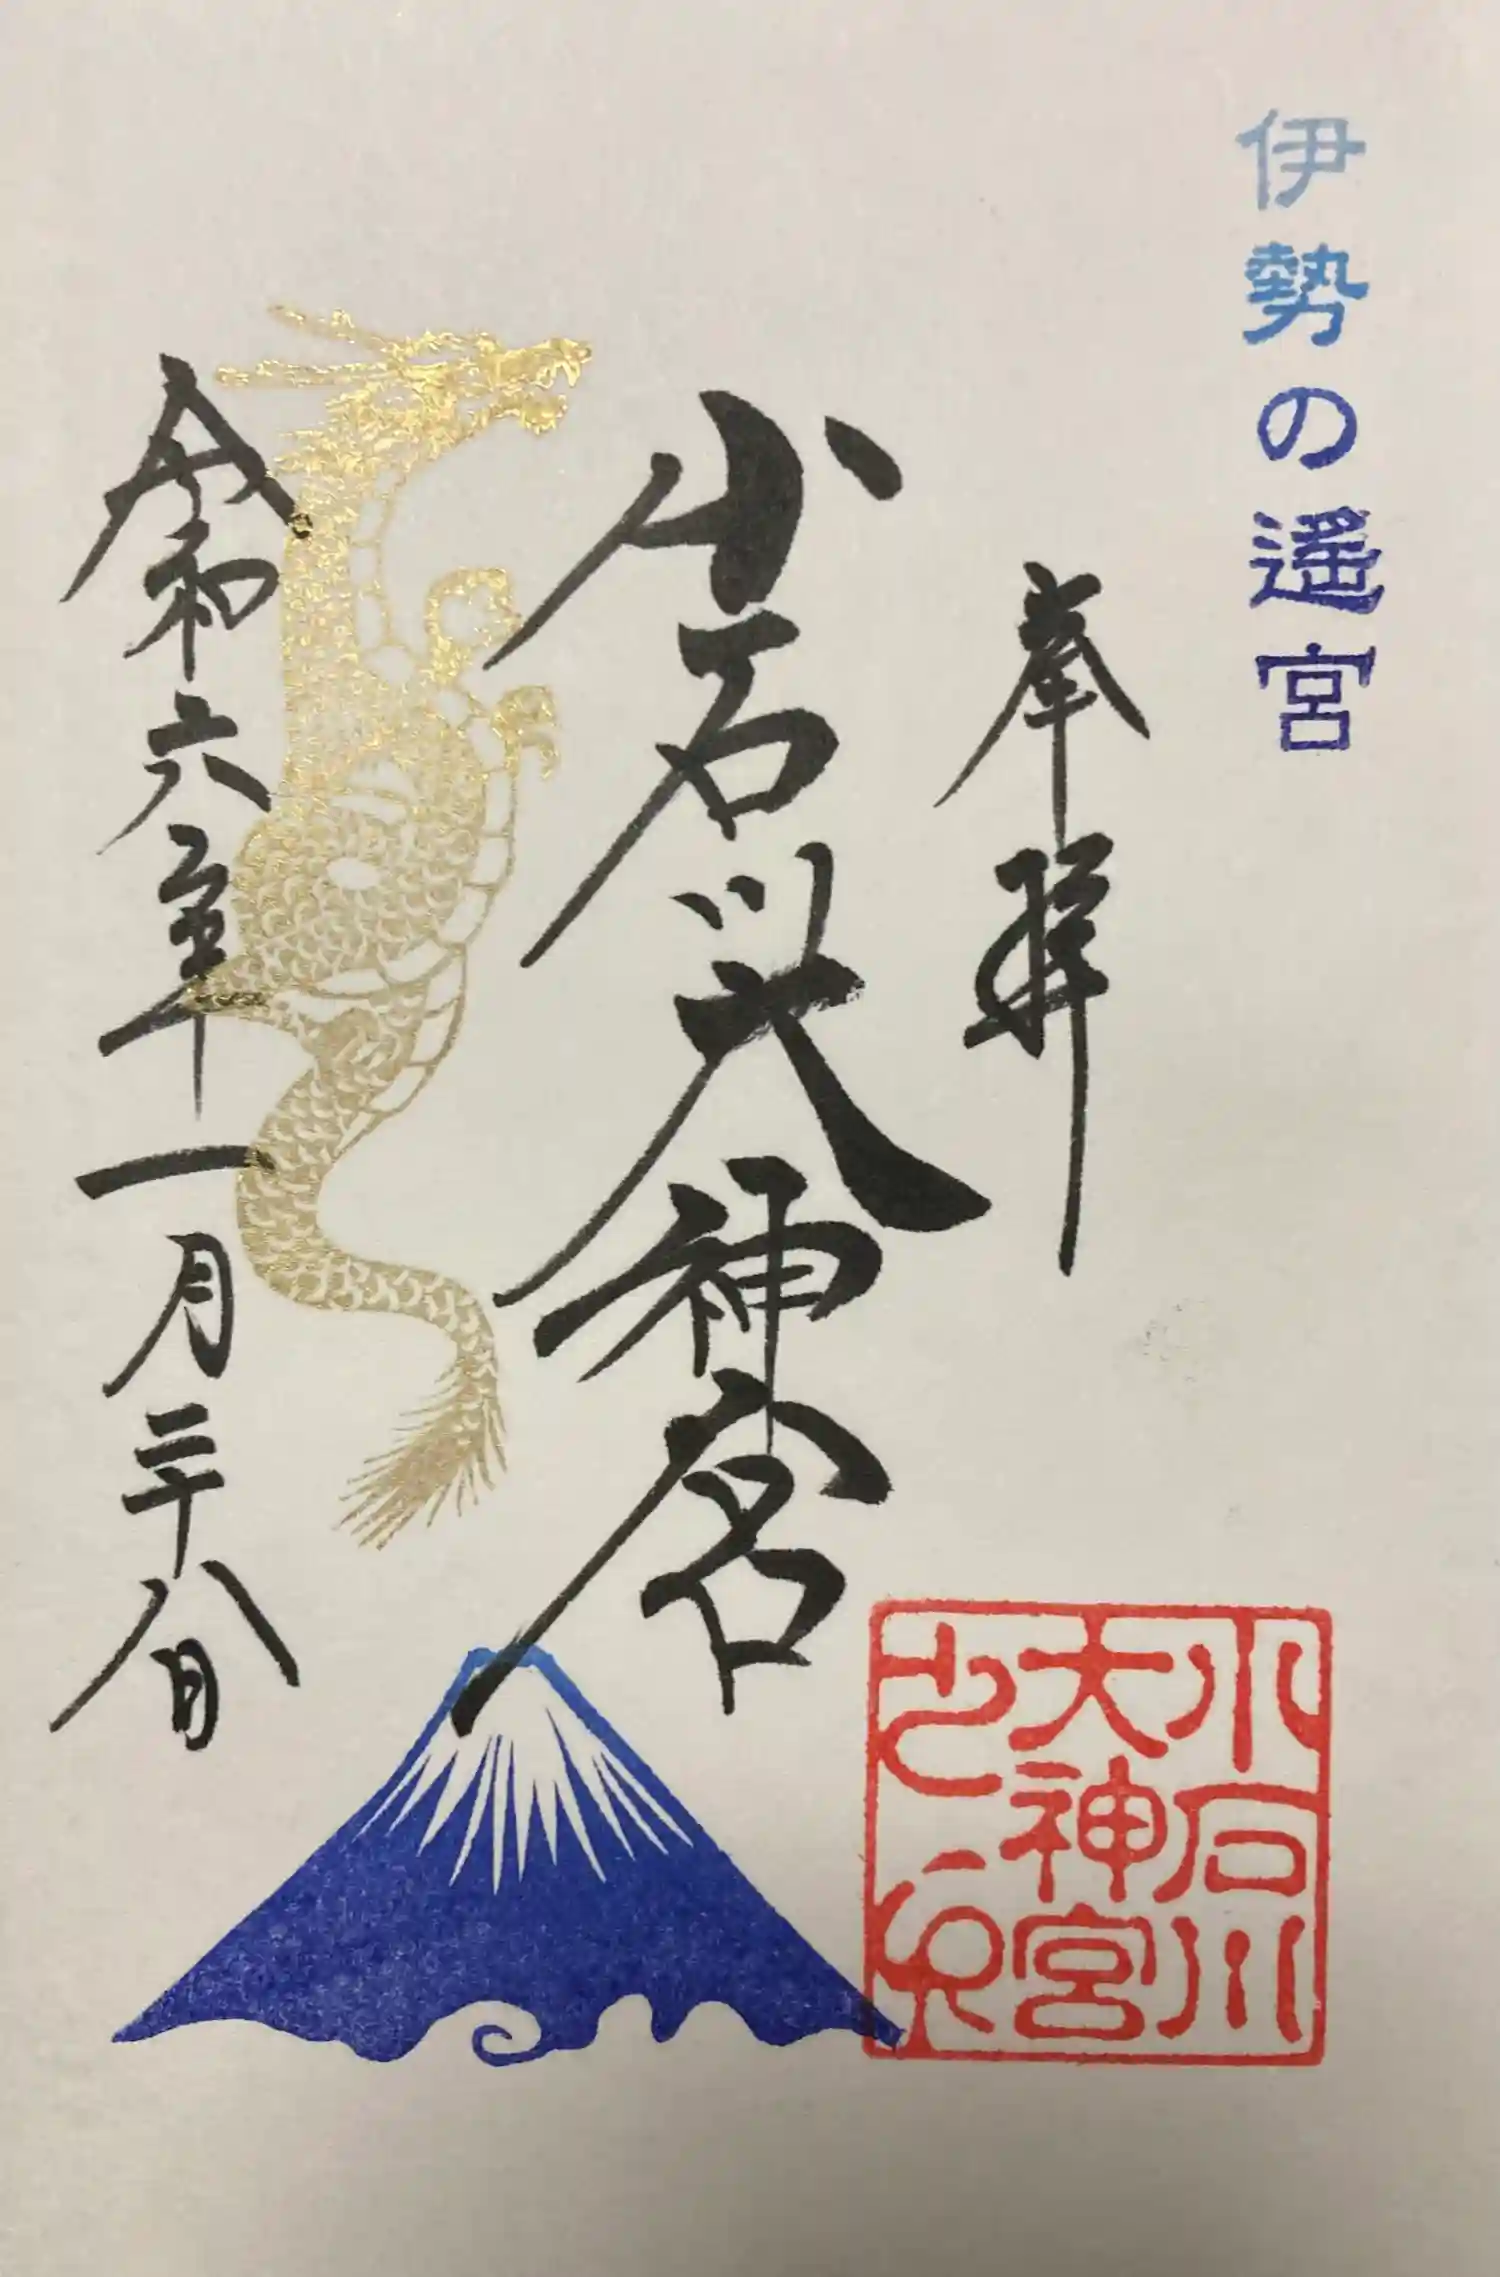 伊勢の遥宮
奉拝
小石川大神宮
令和六年一月二十八日
小石川
大神宮
之印